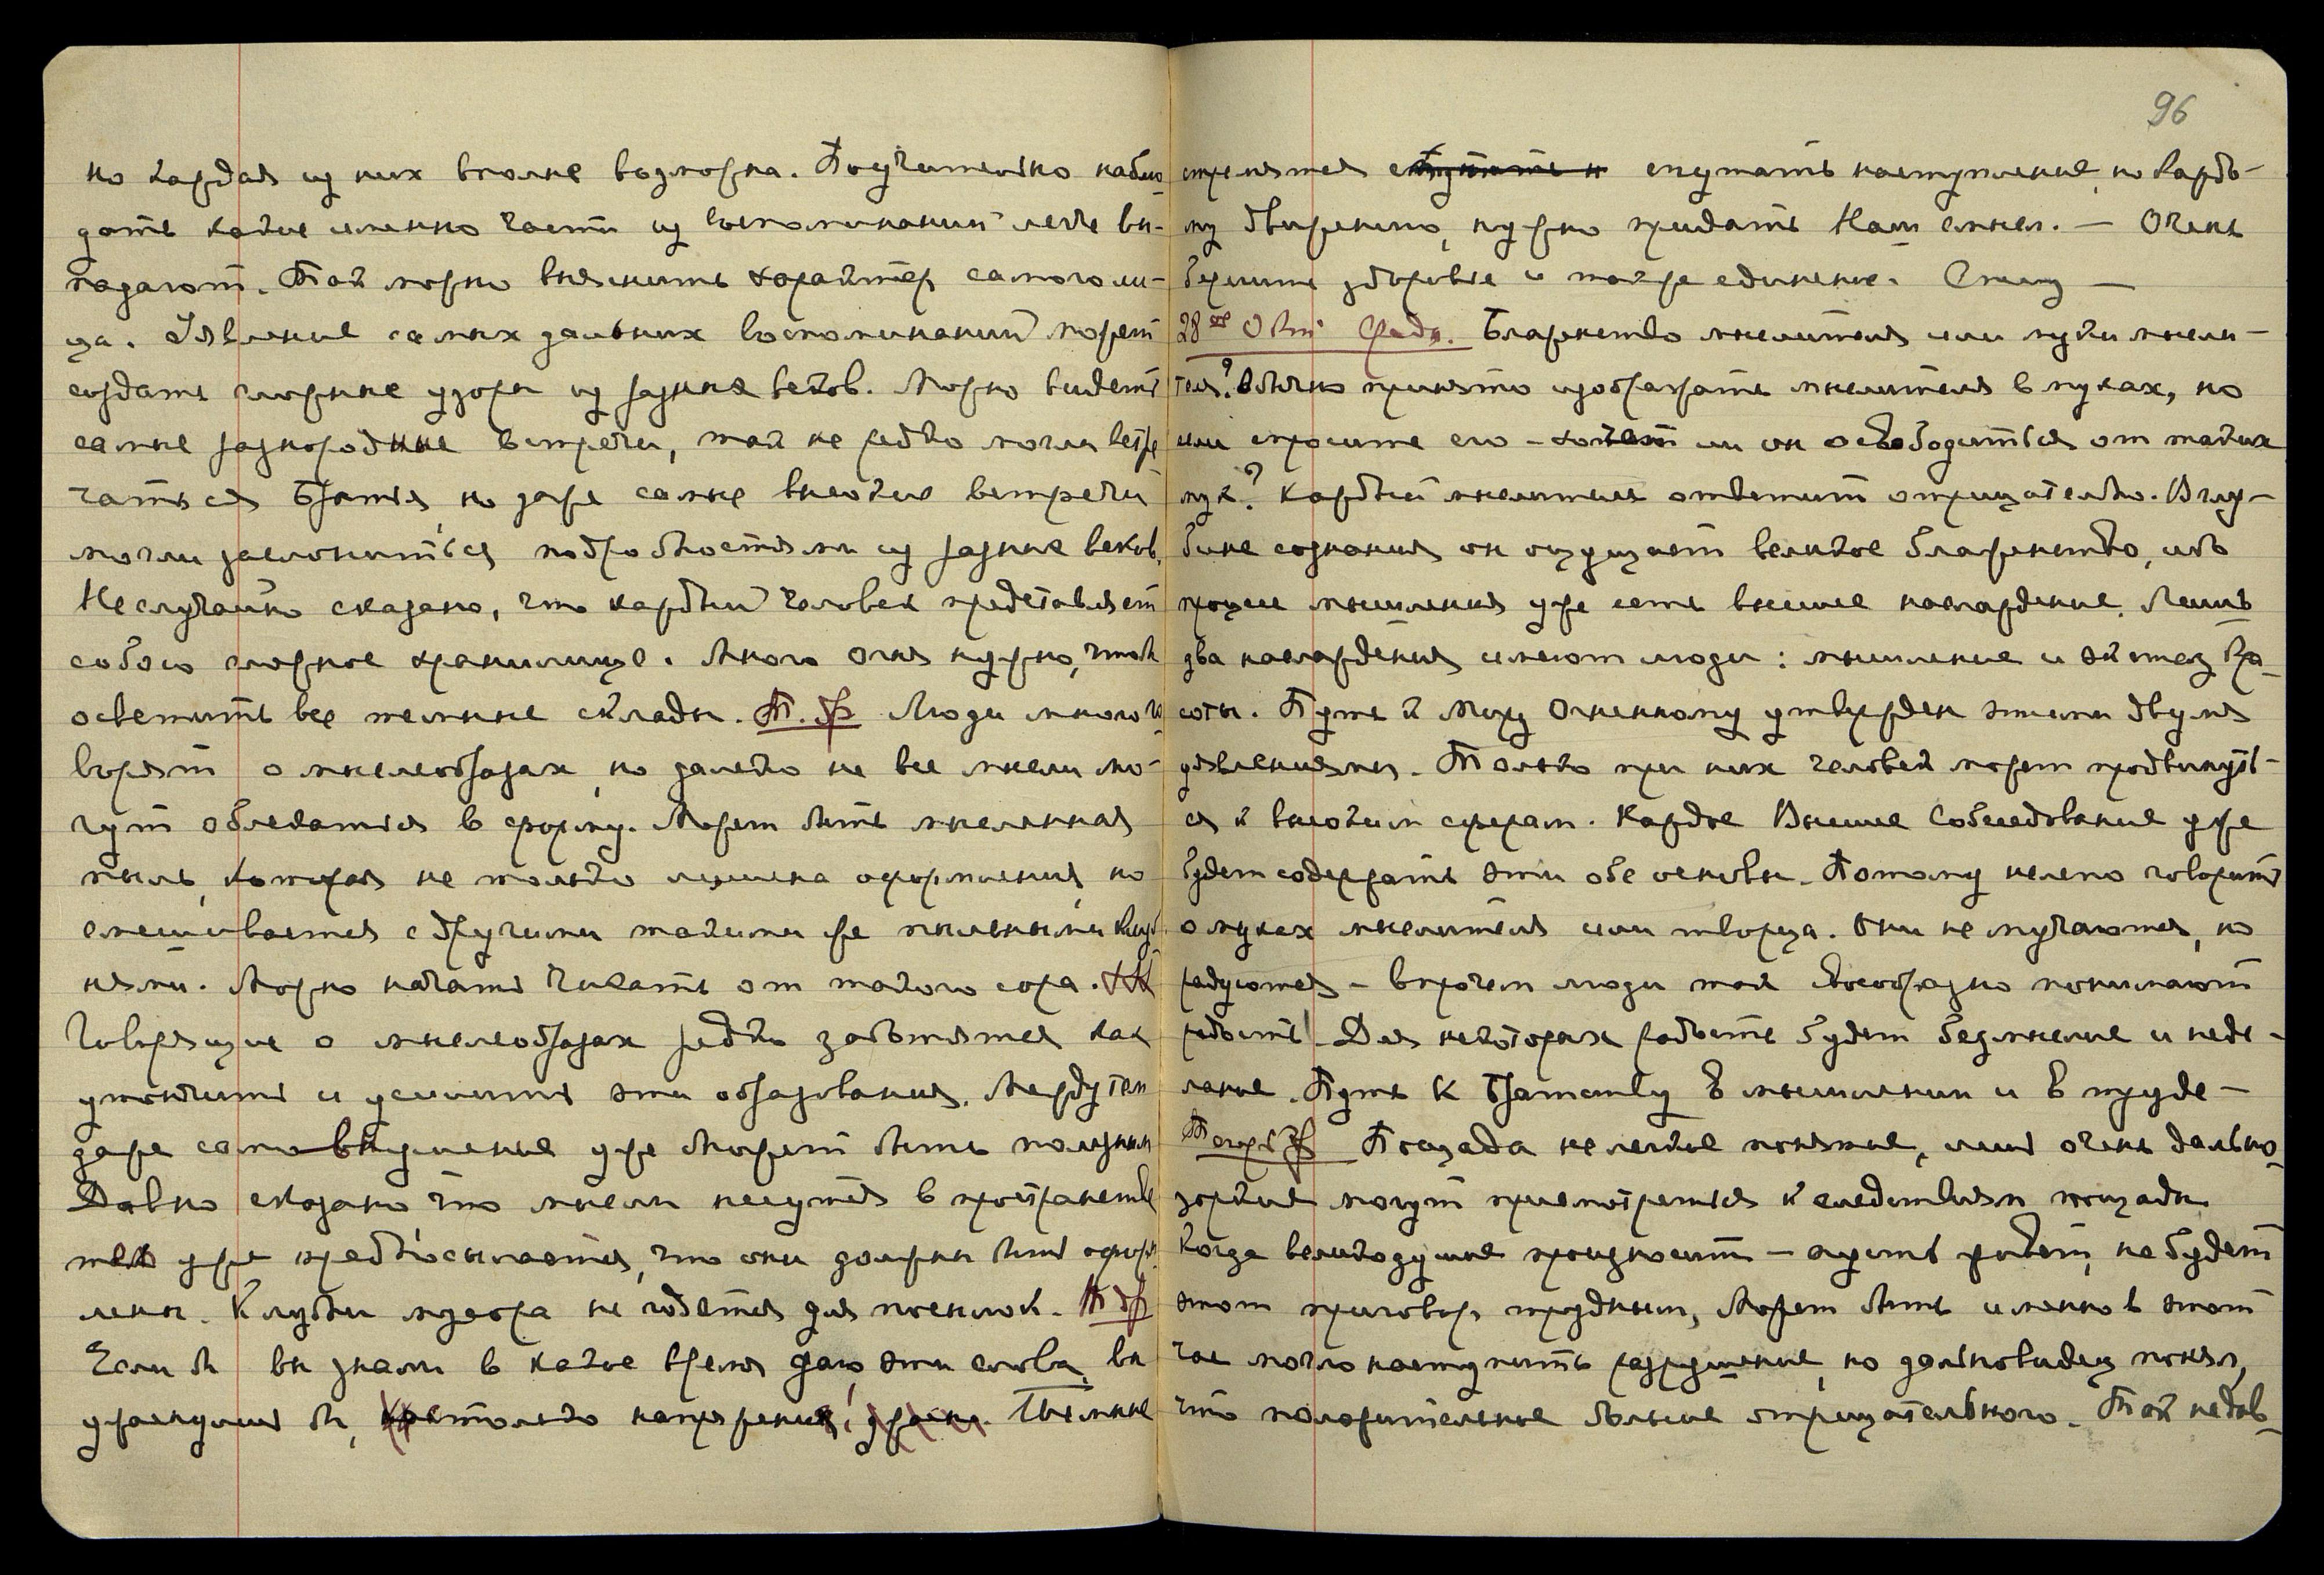 но каждая из них вполне возможна. Поучительно наблю-
дать какие именно части из воспоминаний легче вы-
падают. Так можно выяснить характер самого ли-
ца. Уявление самых дальних воспоминаний может
создать сложные узоры из разных веков. Можно видеть
самые разнородные встречи, так не редко могла встре
чаться Братья, но даже самые высокие встречи
могли заслониться подробностями из разных веков.
Не случайно сказано, что каждый человек представляет
собою сложное хранилище. Много огня нужно, чтоб
осветить все темные склады. Т. ж Люди много го
ворят о мыслеобразах, но далеко не все мысли мо-
гут облекаться в форму. Может быть мысленная
пыль, которая не только лишена оформления, но
смешивается с другими такими же пыльными клуб
нями. Можно начать чихать от такого сора.
Говорящие о мыслеобразах редко заботятся как
утончить и усилить эти образования. Между тем
даже самовнушение уже может быть полезным
Давно сказано, что мысли несутся в пространстве
тем уже предпосылается, что они должны быть оформ
лены. Клубки мусора не годятся для посылок. Т ж
Если б вы знали в какое время даю эти слова, вы
ужаснулись бы, настолько напряжения! ужасны. Темные
96
стремятся спутать наступление, но каждо-
му движению, нужно придать Наш смысл. — Очень
берегите здоровье и также единение. Спешу —
28ое Окт Среда. Блаженство мыслителя или муки мысли-
теля? Обычно принято изображать мыслителя в муках, но
если спросите его – хочет ли он освободиться от таких
мук? Каждый мыслитель ответит отрицательно. В глу-
бине сознания он ощущает великое блаженство, ибо
процесс мышления уже есть высшее наслаждение. Лишь
два наслаждения имеют люди: мышление и экстаз кра-
соты. Путь к Миру Огненному утвержден этими двумя
уявлениями. Только при них человек может продвинуть-
ся к высоким сферам. Каждое Высшее Собеседование уже
будет содержать эти обе основы. Потому нелепо говорить
о муках мыслителя или творца. Они не мучаются, но
радуются – впрочем люди так своеобразно понимают
радость! Для некоторых радость будет безмыслие и неде-
лание. Путь к Братству в мышлении и в труде —
Тогоже Пощада не легкое понятие, лишь очень дально-
зоркие могут присмотреться к следствиям пощады
Когда великодушие произносит – пусть живет, не будет
этот приговор трудным, Может быть именно в этот
час могло наступить разрушение, но дальновидец понял,
что положительное больше отрицательного. Так недав-